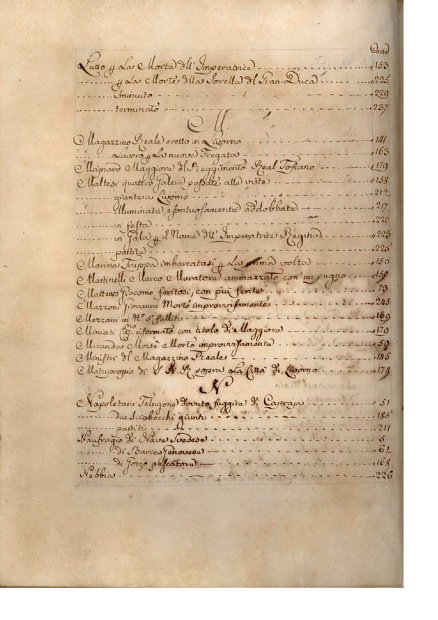 Carte
Lutto p La Morte dll' Imperatrice 153
p La Morte dlla Sorella del Gran Duca 225
Imovuto 229
terminato 237
M
Magazzino Reale eretto in Livorno 141
Lavora p La nuova Fregata 163
Magnard Maggiore dl Reggimento Real Toscano 179
Maltesi quattro Galere passate alle viste 158
giunte a Livorno 212
Illuminate, e sontuosamente addobbate 217
in festa 220
in Gala p il Nome dll' Imperatrice Regina 223
partite 225
Marina Truppa imbarcatasi p La prima volta 150
Martinelli Marco Muratore ammazzato con un pugno 150
Matteucci Giacomo feritosi, con più ferite 73
Mazzoni Giovanni Morto improvvisamente 245
Mozzani in No. 6. falliti 169
Miniati riformato con titolo di Maggiore 179
Miranda Moisè Morto improvvisamente 59
Ministri dl Magazzino Reale 145
Motuproprio di S. A. R. sopra La Città di Livorno 174
N
Napoletani Feluqone dovuto fuggire di Capraja 51
due Sciabecchi giunti 185
partiti 211
Naufragio di Nave Svedese 5
di Barca Genovese 61
di Gozzo pescatore 168
Nebbia 226